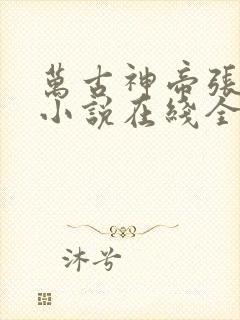 萬古神帝張
小說在綫全
沐兮